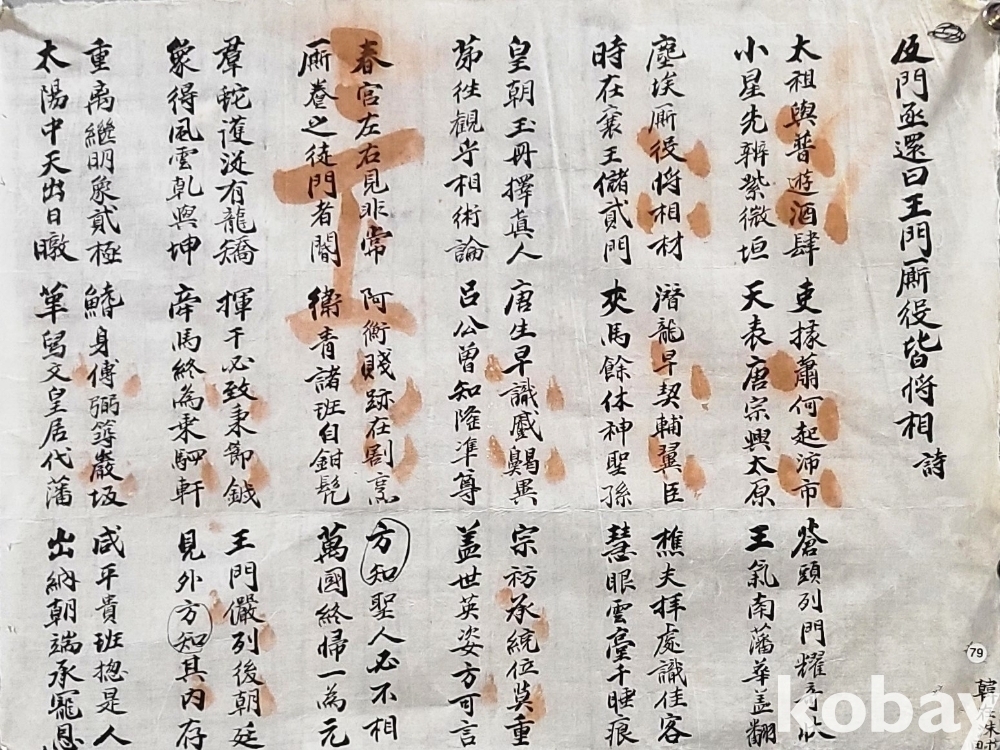 及門亟還曰王門厮役皆將相 詩
太祖與普遊酒肆 吏掾蕭何起沛市 蒼頭列門耀
小星先辨紫微垣 天表唐宗興太原 王氣南藩華盖翻
塵埃厮役將相材 潛龍早契輔翼臣 樵夫拜處識佳客
時在襄王儲貳門 夾馬餘休神聖孫 慧眼雲臺千睡痕
皇朝玉冊擇真人 唐生早識戚齃異 宗祊承統位莫重
苐往觀乎相術論 呂公曾知隆準尊 盖世英姿方可言
春宮左右見非常 阿衡賤跡在割烹 方知聖人必不相
厮養之徒門者閽 衛青諸班自鉗髡 萬國終歸一為元
羣蛇護涎有龍矯 揮干必致秉節鉞 王門儼列後朝廷
象得風雲乾與坤 牽馬終為乘駟軒 見外方知其内存
重离繼明象貳極 身傅弼 巖 咸平貴班摠是人
太陽中天出日暾 革舄文皇居代藩 出納朝端承寵恩
79
kobay